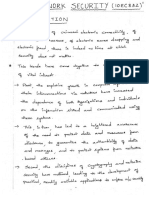 WORK SECURITY (10EC832)
TION
of universal electronic connectivity, of
of electronic eaves dropping and
electronic fraud, there is indeed no time at which
security does not matter.
* Two trends have come together to
of vital interest
* First, the explosive growth in computer
their interconnections via networks has increased
the dependence of both organizations and individuals
on the information stored and communicated using
these systems.
* This in turn, has led to a heightened awareness
of the need to protect data and resources from
disclosure, to guarantee the authenticity of data
and messages, and to protect systems from network-
based attacks.
* Second, the disciplines of cryptography and network
security have matured, leading to the development of
practical, readily available applications to enforce n/w security